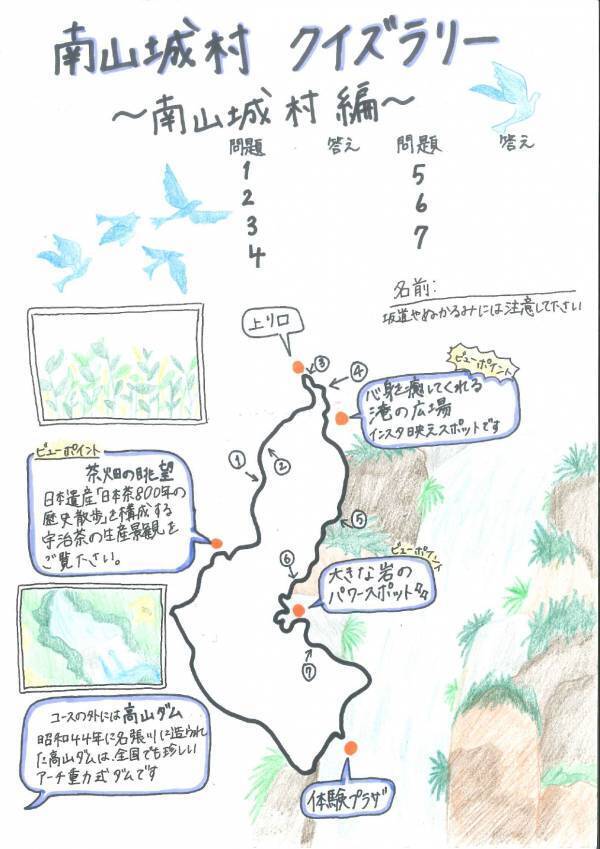 南山城村 クイズラリー
～南山城村編～
問題 答え 問題 答え
1 5
2 6
3 7
4
名前:
坂道やぬかるみには注意して下さい
上り口
③
④
ビューポイント
心身を癒してくれる
滝の広場
インスタ映えスポットです
ビューポイント
茶畑の眺望
日本遺産「日本茶800年の
歴史散歩」を構成する
宇治茶の生産景観を
ご覧ください。
①
②
⑤
ビューポイント
⑥
大きな岩の
パワースポット
⑦
コースの外には高山ダム
昭和44年に名張川に造られ
た高山ダムは、全国でも珍しい
アーチ重力式ダムです
体験プラザ